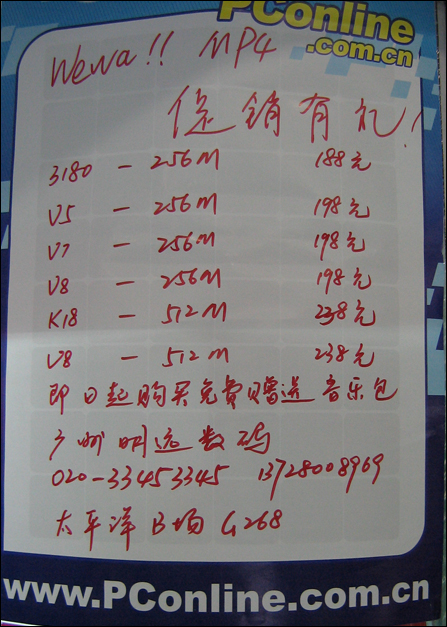 PConline
.com.cn
Wewa!! MP4
促销有礼!
3180 - 256M 188元
V5 - 256M 198元
V7 - 256M 198元
V8 - 256M 198元
K18 - 512M 238元
V8 - 512M 238元
即日起购买免费赠送音乐包
广州明远数码
020-33453345 13728008969
太平洋B场G268
www.PConline.com.cn